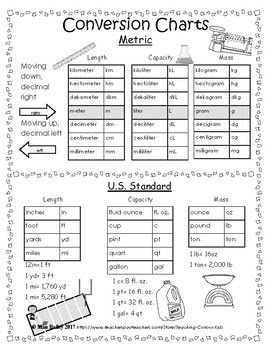 Conversion Charts
Metric
Moving
down,
decimal
right
right
Moving up,
decimal left
left
Length
kilometer km
hectometer hm
dekameter dkm
meter m
decimeter dm
centimeter cm
millimeter mm
Capacity
kiloliter kL
hectoliter hL
dekaliter dkL
liter L
deciliter dL
centiliter cL
milliliter mL
Mass
kilogram kg
hectogram hg
dekagram dkg
gram g
decigram dg
centigram cg
milligram mg
U.S. Standard
Length
inches in
foot ft
yards yd
miles mi
12in= 1 ft
1 yd= 3 ft
1 mi= 1,760 yd
1 mi= 5,280 ft
Capacity
fluid ounce fl. oz
cup c
pint pt
quart qt
gallon gal
1 c= 8 fl. oz.
1 pt= 16 fl. oz.
1 qt= 32 fl. oz.
1 gal= 4 qt
Mass
ounce oz
pound lb
ton ton
1 lb= 16oz
1 ton= 2,000 lb
2017 https://www.teacherspayteachers.com/Store/Teaching-Curious-Kids